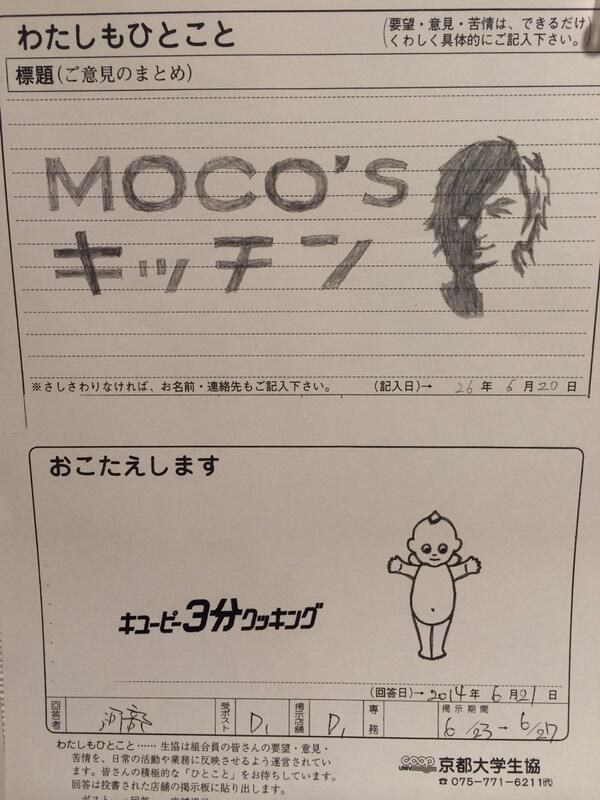 わたしもひとこと
(要望・意見・苦情は、できるだけ
くわしく具体的にご記入下さい。)
標題(ご意見のまとめ)
MOCO'S
キッチン
※さしさわりなければ、お名前・連絡先もご記入下さい。 (記入日)→ 26年 6月20日
おこたえします
キユーピー3分クッキング
(回答日)→2014年 6月21日
回答者 阿部 受ポスト D, 掲示店舗 D, 専務 掲示期間
6/23→6/27
わたしもひとこと……生協は組合員の皆さんの要望・意見・
苦情を、日常の活動や業務に反映させるよう運営されてい
ます。皆さんの積極的な「ひとこと」をお待ちしています。
回答は投書された店舗の掲示板に貼り出します。
UNIV. COOP 京都大学生協
☎ 075-771-6211㈹